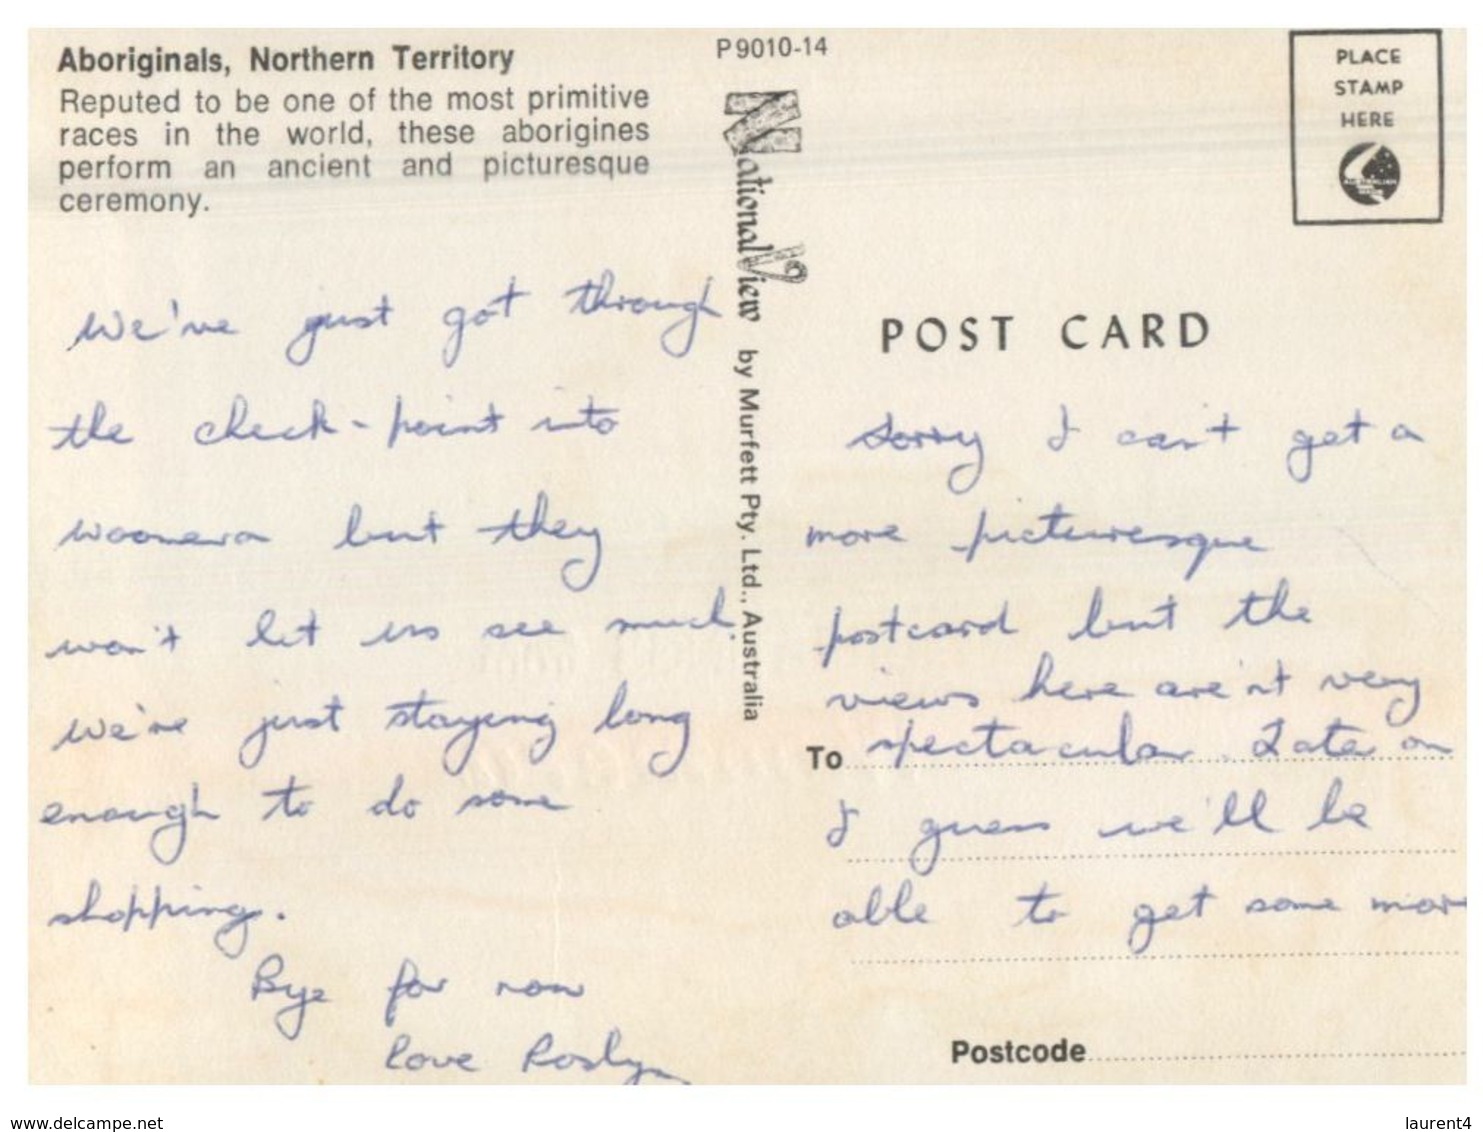 Aboriginals, Northern Territory
Reputed to be one of the most primitive
races in the world, these aborigines
perform an ancient and picturesque
ceremony.
We've just got through
the check-point into
woomera but they
won't let us see much.
We're just staying long
enough to do some
shopping.
Bye for now
Love Roslyn
P9010-14
National View by Murfett Pty. Ltd., Australia
PLACE
STAMP
HERE
POST CARD
Sorry I can't get a
more picturesque
postcard but the
views here are'nt very
To spectacular. Later on
I guess we'll be
able to get some more
Postcode
www.delcampe.net
laurent4